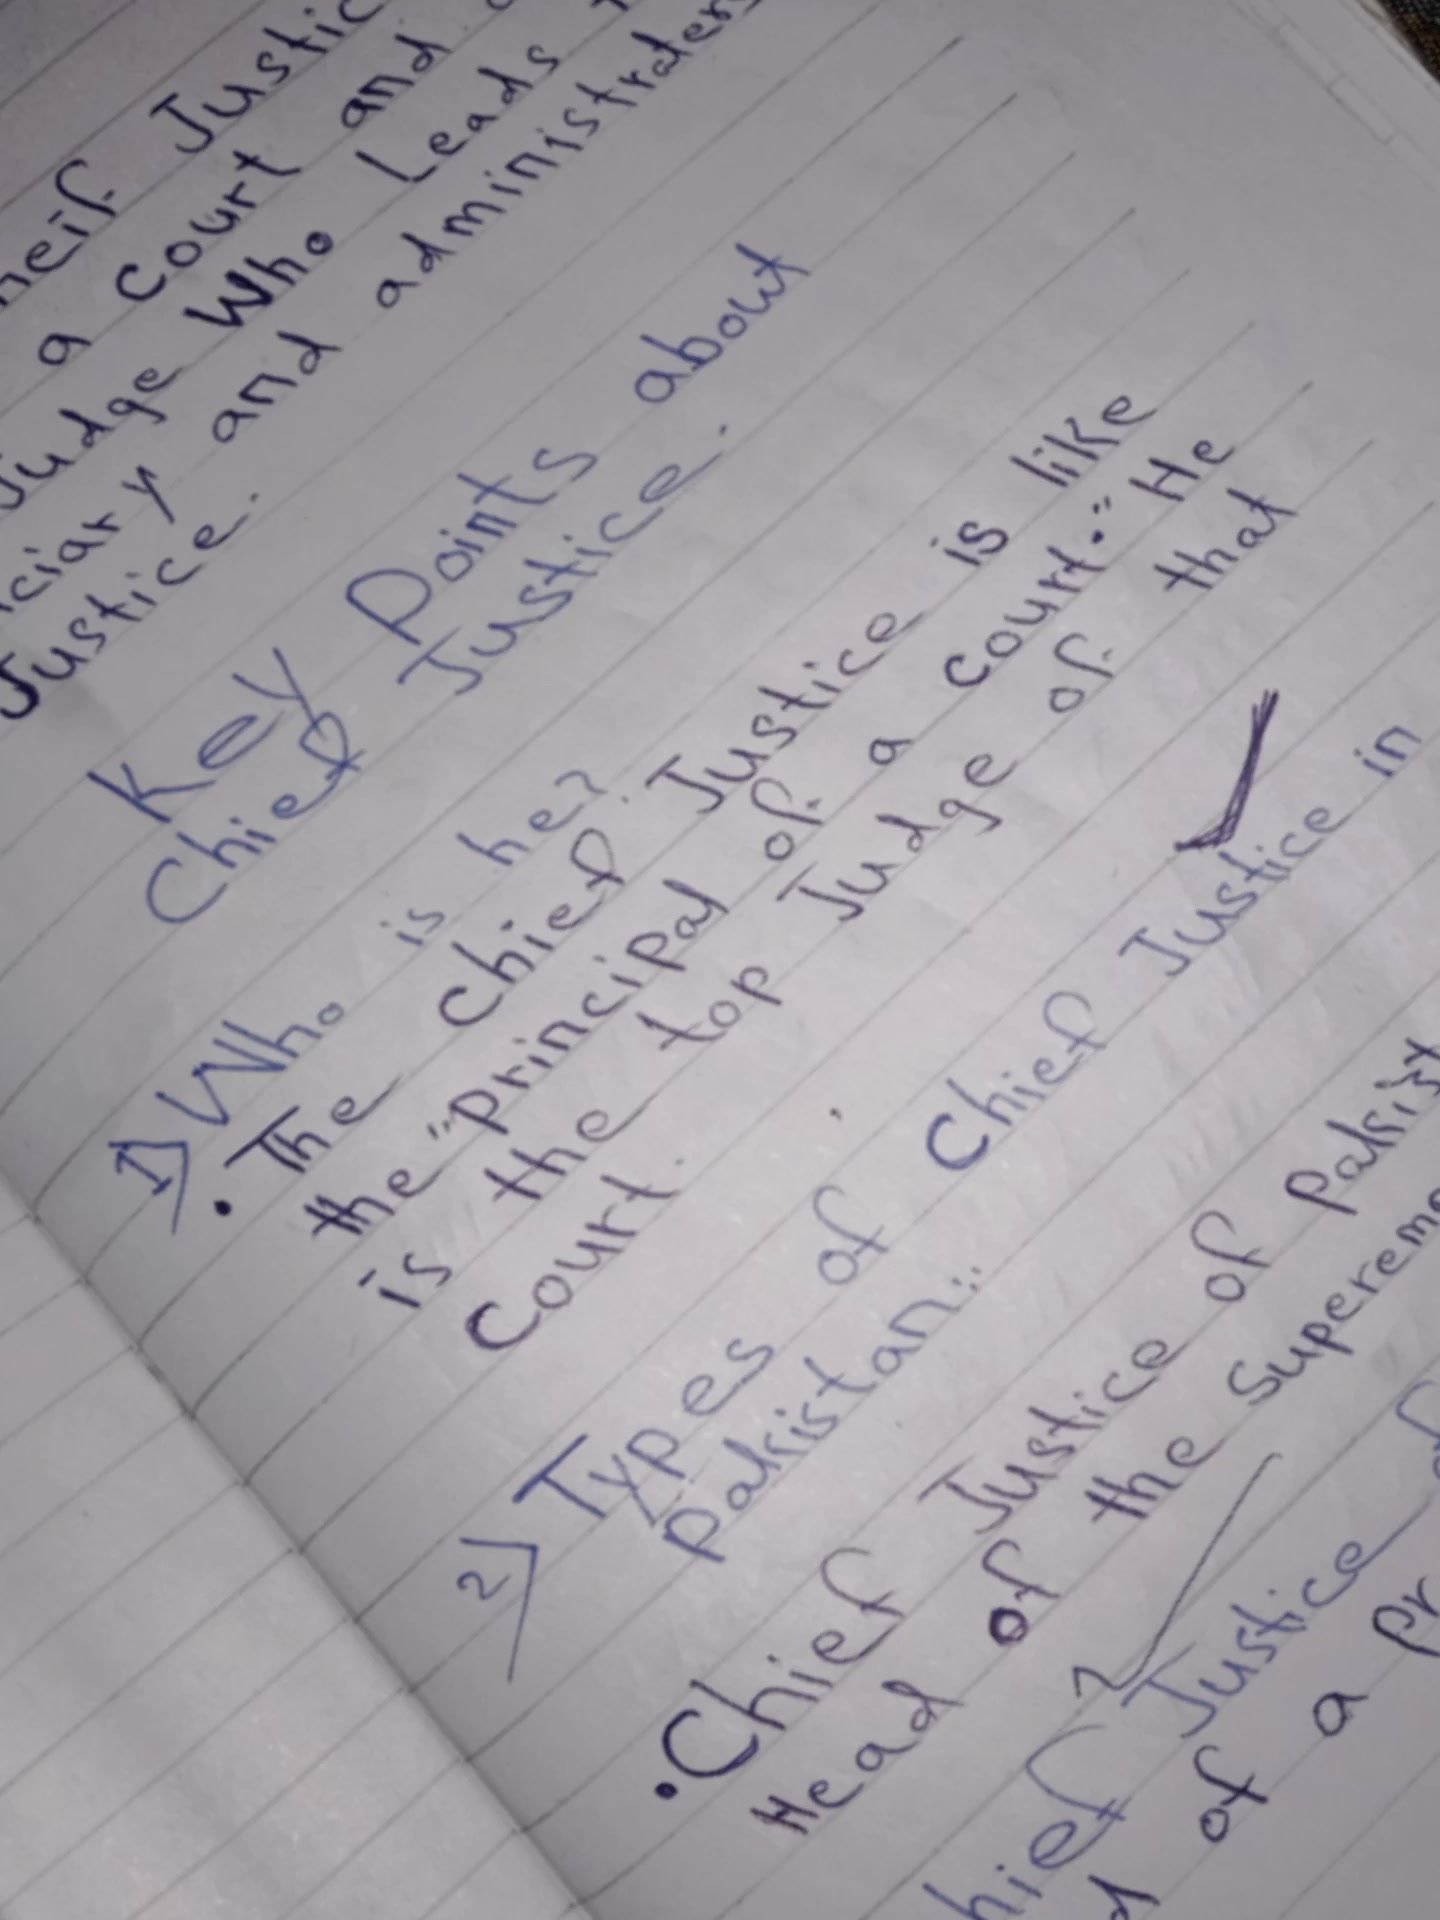 Justic
a court and
Judge Who Leads
and administrater
Justice.
Key Points about
Chief Justice.
1) Who is he?
• The Chief Justice is like
the "principal of a court." He
is the top Judge of that
Court.
2) Types of Chief Justice in
Pakistan:
• Chief Justice of Pakist
Head of the Superem
hief Justice
of a Pr